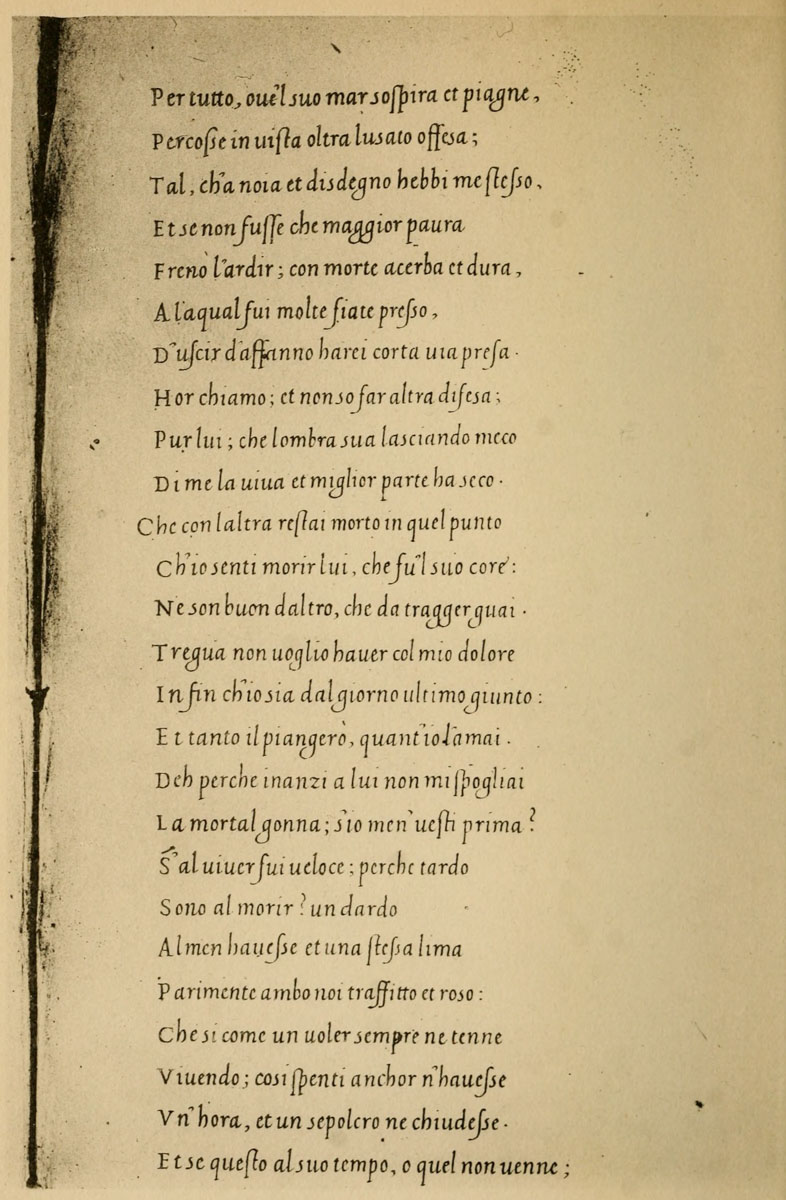 Per tutto, ouè'l suo mar sospira et piagne,
Percosse in uista oltra lusato offesa;
Tal, ch'a noia et disdegno hebbi me stesso,
Et se non fusse che maggior paura
Frenò l'ardir; con morte acerba et dura,
A laqual fui molte fiate presso,
D'uscir d'affanno harei corta uia presa.
Hor chiamo; et non so far altra difesa;
Pur lui; che lombra sua lasciando meco
Di me la uiua et miglior parte ha seco.
Che con laltra restai morto in quel punto
Ch'io senti morir lui, che fu'l suo core:
Ne son buon daltro, che da tragger guai.
Tregua non uoglio hauer col mio dolore
Infin ch'io sia dal giorno ultimo giunto:
Et tanto il piangerò, quant'io l'amai.
Deh perche inanzi a lui non mi spogliai
La mortal gonna; s'io men' uesti prima?
S'al uiuer fui ueloce; perche tardo
Sono al morir? un dardo
Almen hauesse et una stessa lima
Parimente ambo noi traffitto et roso:
Che si come un uoler sempre ne tenne
Viuendo; cosi spenti anchor n'hauesse
Vn'hora, et un sepolcro ne chiudesse.
Et se questo al suo tempo, o quel non uenne;